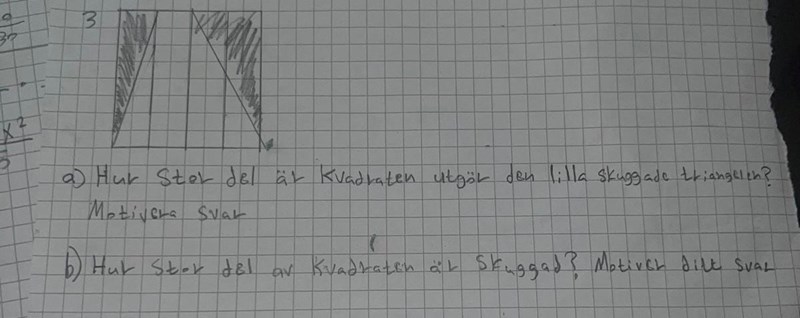 3
x²
a) Hur Stor del är Kvadraten utgör den lilla skuggade triangeln?
Motivera svar
b) Hur Stor del av Kvadraten är Skuggad? Motiver ditt svar